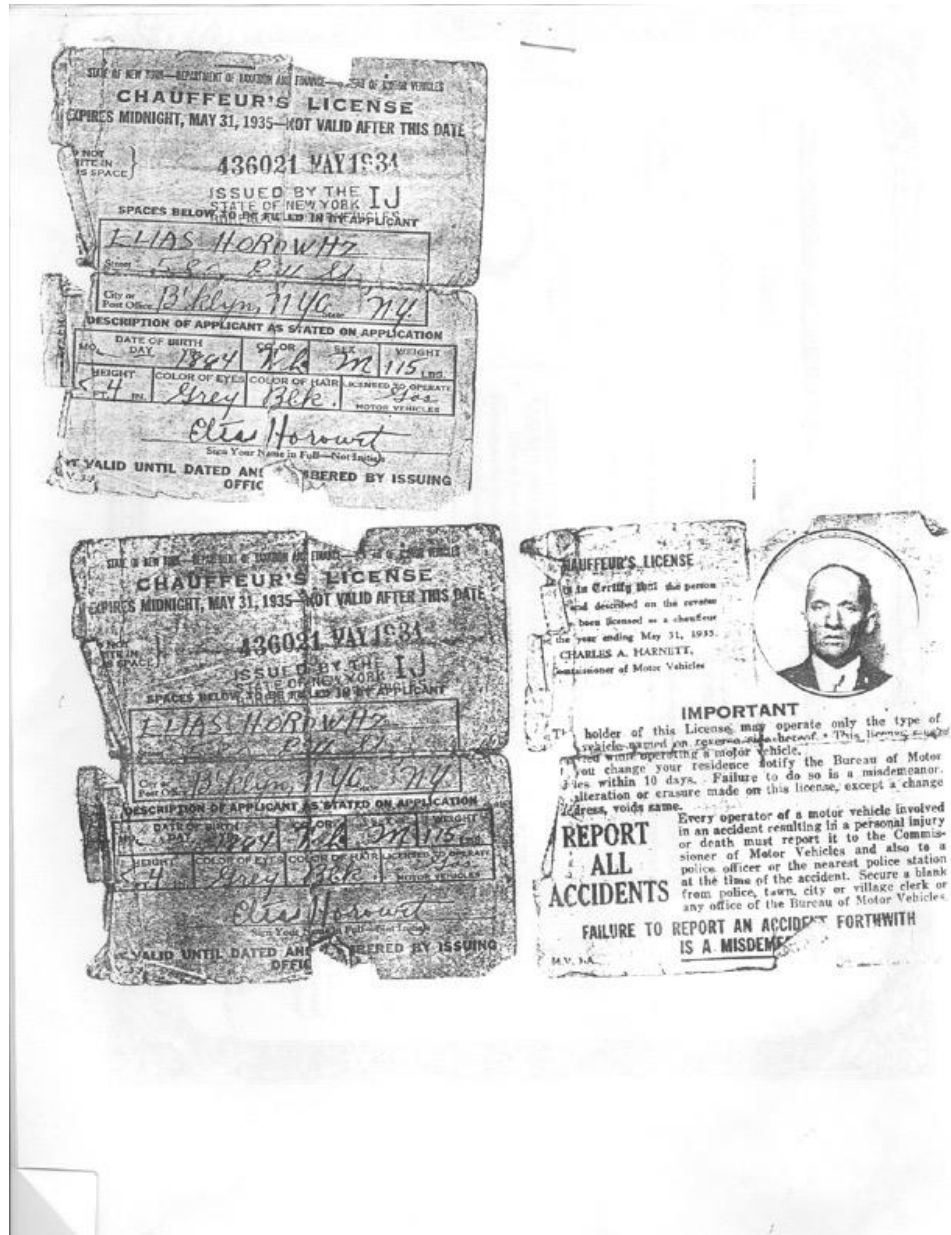 STATE OF NEW YORK—DEPARTMENT OF TAXATION AND FINANCE— OF MOTOR VEHICLES
CHAUFFEUR'S LICENSE
EXPIRES MIDNIGHT, MAY 31, 1935—NOT VALID AFTER THIS DATE
NOT
ITE IN
S SPACE
436021 MAY 1934
ISSUED BY THE IJ
STATE OF NEW YORK
SPACES BELOW TO BE FILLED IN BY APPLICANT
ELIAS HOROWITZ
Street
City or
Post Office B'klyn, NYC State N.Y.
DESCRIPTION OF APPLICANT AS STATED ON APPLICATION
DATE OF BIRTH COLOR SEX WEIGHT
MO. DAY 1884 Wh M 115 LBS.
HEIGHT COLOR OF EYES COLOR OF HAIR LICENSED TO OPERATE
5 FT. 4 IN. Grey Blk. Gas
MOTOR VEHICLES
Elias Horowit
Sign Your Name in Full—Not Initials
T VALID UNTIL DATED AND BERED BY ISSUING
OFFIC
STATE OF NEW YORK—DEPARTMENT OF TAXATION AND FINANCE— OF MOTOR VEHICLES
CHAUFFEUR'S LICENSE
EXPIRES MIDNIGHT, MAY 31, 1935—NOT VALID AFTER THIS DATE
NOT
ITE IN
S SPACE
436021 MAY 1934
ISSUED BY THE IJ
STATE OF NEW YORK
SPACES BELOW TO BE FILLED IN BY APPLICANT
ELIAS HOROWITZ
Street
City or
Post Off B'klyn, NYC N.Y.
DESCRIPTION OF APPLICANT AS STATED ON APPLICATION
DATE OF BIRTH COLOR SEX WEIGHT
MO. DAY 1884 Wh M 115 LBS.
HEIGHT COLOR OF EYES COLOR OF HAIR LICENSED TO OPERATE
5 4 IN. Grey Blk. Gas
MOTOR VEHICLES
Elias Horowit
Sign Your Name in Full—Not Initials
VALID UNTIL DATED AND BERED BY ISSUING
OFFIC
HAUFFEUR'S LICENSE
is to Certify that the person
and described on the reverse
been licensed as a chauffeur
the year ending May 31, 1935.
CHARLES A. HARNETT,
Commissioner of Motor Vehicles
IMPORTANT
holder of this License may operate only the type of
vehicle named on reverse side hereof. This license
while operating a motor vehicle.
you change your residence notify the Bureau of Motor
les within 10 days. Failure to do so is a misdemeanor.
alteration or erasure made on this license, except a change
address, voids same.
REPORT
ALL
ACCIDENTS
Every operator of a motor vehicle involved
in an accident resulting in a personal injury
or death must report it to the Commis-
sioner of Motor Vehicles and also to a
police officer or the nearest police station
at the time of the accident. Secure a blank
from police, town, city or village clerk or
any office of the Bureau of Motor Vehicles.
FAILURE TO REPORT AN ACCIDENT FORTHWITH
IS A MISDEME
M.V. 3-A